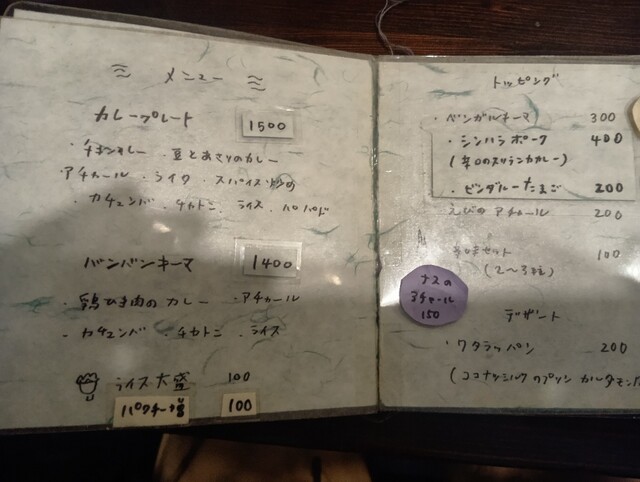 メニュー
カレープレート 1500
・チキンカレー ・豆とあさりのカレー
アチャール ・ライタ ・スパイス炒め
・カチュンバ ・チャトニ ・ライス ・パパド
バンバンキーマ 1400
・鶏ひき肉のカレー ・アチャール
・カチュンバ ・チャトニ ・ライス
ライス大盛 100
パクチー増 100
トッピング
・ベンガルキーマ 300
・シンハラポーク 400
(辛口のスリランカカレー)
・ビンダルーたまご 200
えびのアチャール 200
セット 100
(2〜3種)
ナスの
アチャール
150
デザート
・ワタラッパン 200
(ココナッツミルクのプリン カルダモン